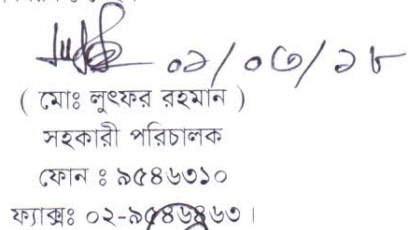 ০১/০৩/১৮
( মোঃ লুৎফর রহমান )
সহকারী পরিচালক
ফোন ঃ ৯৫৪৬৩১০
ফ্যাক্সঃ ০২-৯৫৪৬৪৬৩।